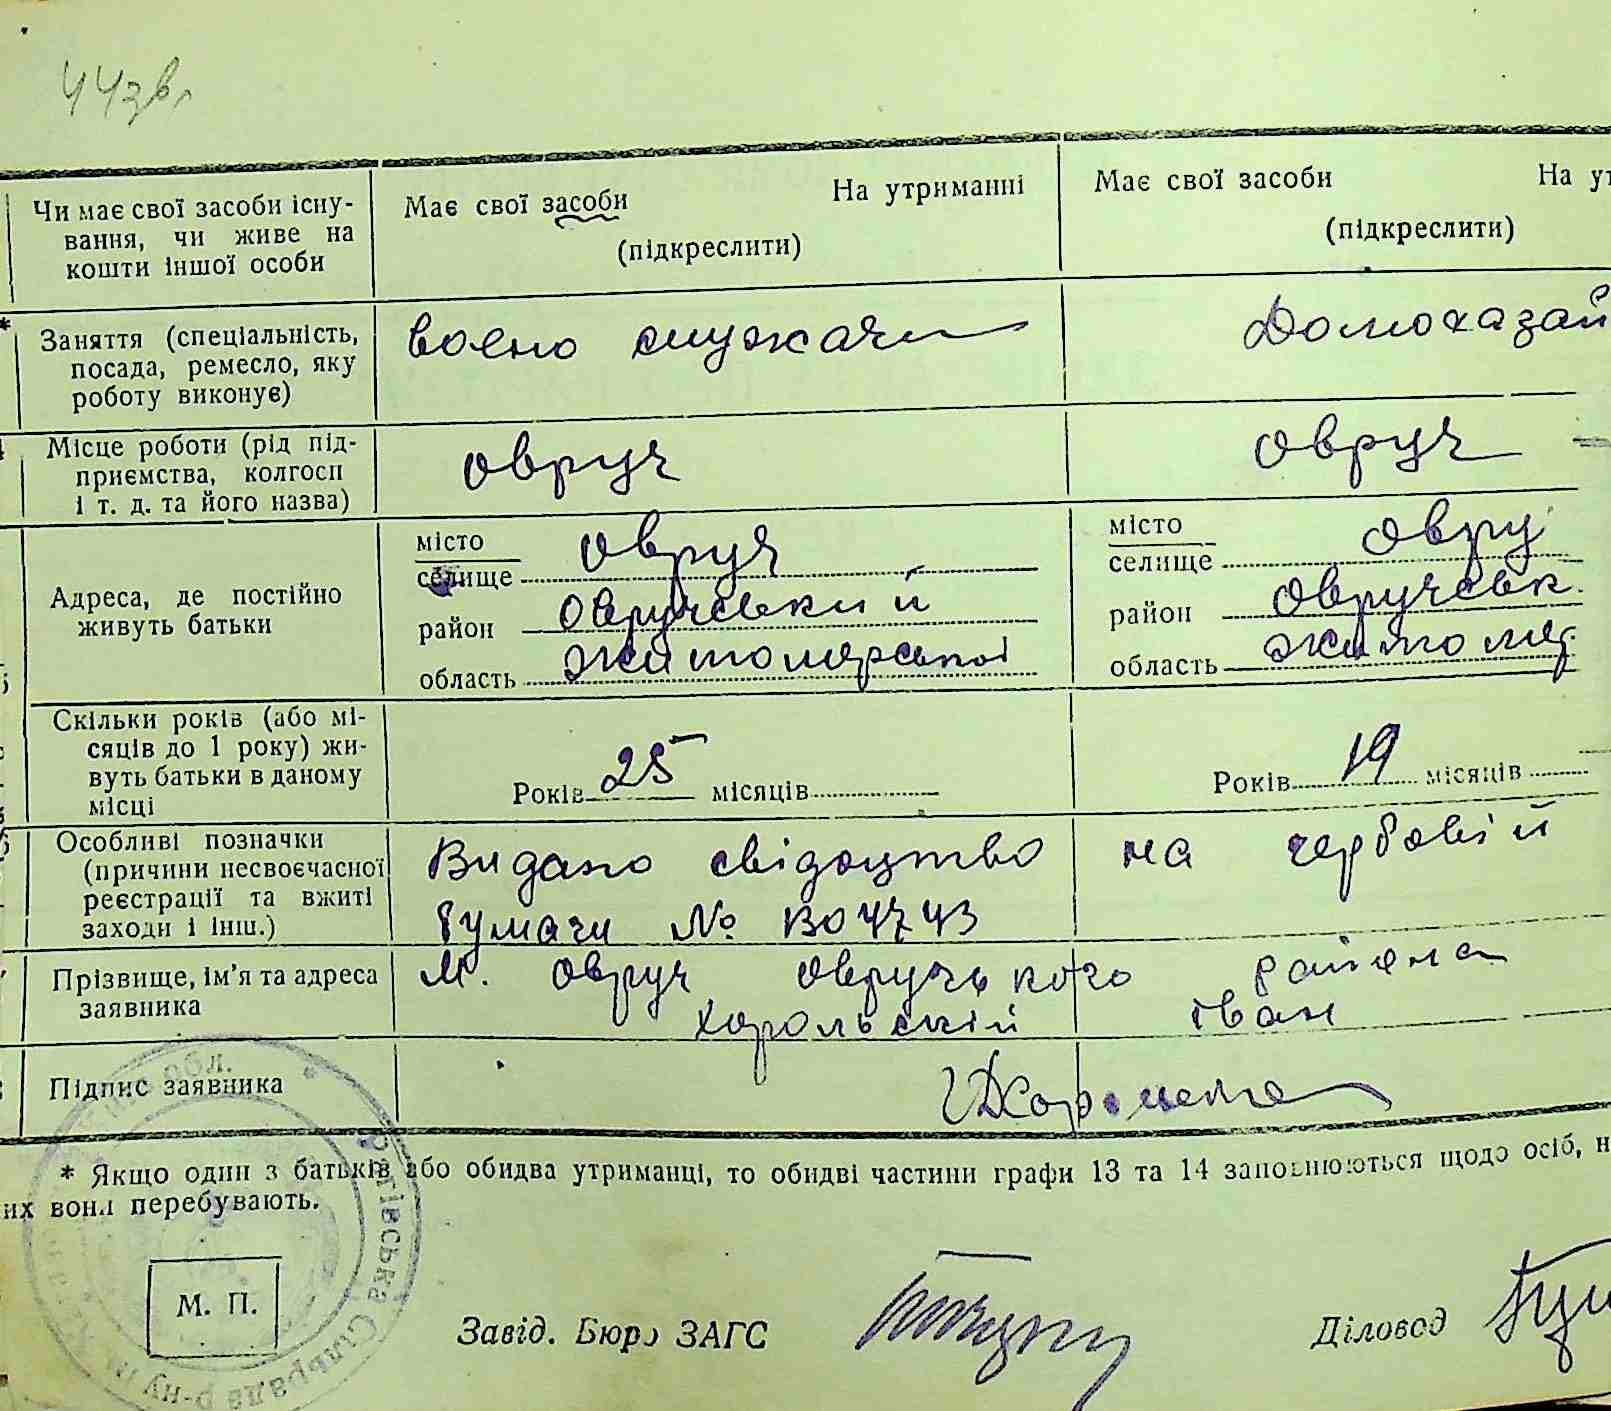 44зв.
Чи має свої засоби існу-
вання, чи живе на
кошти іншої особи
Має свої засоби На утриманні
(підкреслити)
Має свої засоби На ут
(підкреслити)
*
Заняття (спеціальність,
посада, ремесло, яку
роботу виконує)
воено служачи
Домохазяй
Місце роботи (рід під-
приємства, колгосп
і т. д. та його назва)
Овруч
Овруч
Адреса, де постійно
живуть батьки
місто
селище Овруч
район Овручський
область Житомирської
місто
селище Овру
район Овручськ.
область Житомир.
Скільки років (або мі-
сяців до 1 року) жи-
вуть батьки в даному
місці
Років 25 місяців
Років 19 місяців
Особливі позначки
(причини несвоєчасної
реєстрації та вжиті
заходи і інш.)
Видано свідоцтво на гербовій
бумачи № ВО 4743
Прізвище, ім'я та адреса
заявника
М. Овруч Овручського района
Хорольский Іван
Підпис заявника
* Якщо один з батьків або обидва утриманці, то обидві частини графи 13 та 14 заповнюються щодо осіб, н
их вони перебувають.
М. П.
Завід. Бюро ЗАГС
Діловод
обл.
Сільрада р-ну